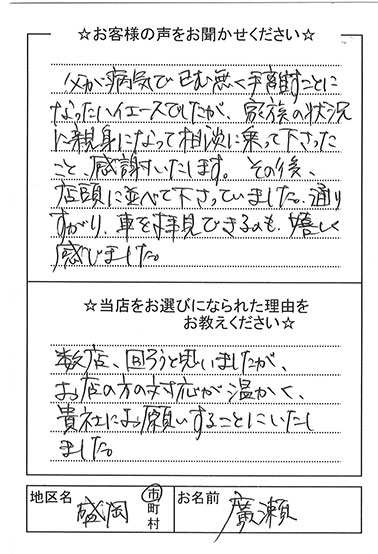 ☆お客様の声をお聞かせください☆
父が病気で已む無く手離すことに
なったハイエースでしたが、家族の状況
に親身になって相談に乗って下さった
こと、感謝いたします。その後、
店頭に並べて下さっていました。通り
すがり、車を拝見できるのも、嬉しく
感じました。
☆当店をお選びになられた理由を
お教えください☆
数店、回ろうと思いましたが、
お店の方の対応が温かく、
貴社にお願いすることにいたし
ました。
地区名 盛岡 市町村 お名前 廣瀬